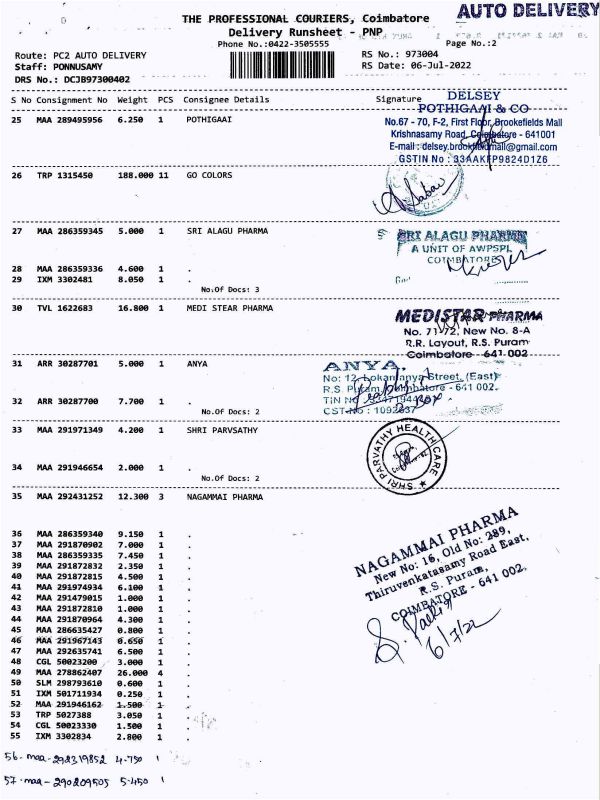 AUTO DELIVERY
THE PROFESSIONAL COURIERS, Coimbatore
Delivery Runsheet - PNP
Phone No.:0422-3505555
Page No.:2
Route: PC2 AUTO DELIVERY
RS No.: 973004
Staff: PONNUSAMY
RS Date: 06-Jul-2022
DRS No.: DCJB97300402
S No Consignment No Weight PCS Consignee Details Signature
DELSEY
POTHIGAAI & CO
25 MAA 289495956 6.250 1 POTHIGAAI
No.67 - 70, F-2, First Floor, Brookefields Mall
Krishnasamy Road, Coimbatore - 641001
E-mail: delsey.brookfieldmall@gmail.com
GSTIN No : 33AAKFP9824D1Z6
26 TRP 1315450 188.000 11 GO COLORS
27 MAA 286359345 5.000 1 SRI ALAGU PHARMA
SRI ALAGU PHARMA
A UNIT OF AWPSPL
COIMBATORE
28 MAA 286359336 4.600 1 .
29 IXM 3302481 8.050 1 .
No.Of Docs: 3
30 TVL 1622683 16.800 1 MEDI STEAR PHARMA
MEDISTAR PHARMA
No. 71-72, New No. 8-A
R.R. Layout, R.S. Puram
Coimbatore - 641 002
31 ARR 30287701 5.000 1 ANYA
ANYA.
No: 12, Lokamanya Street, (East)
R.S. Puram, Coimbatore - 641 002.
TIN No
CST No : 1092637
32 ARR 30287700 7.700 1 .
No.Of Docs: 2
33 MAA 291971349 4.200 1 SHRI PARVSATHY
SHRI PARVATHY HEALTH CARE
34 MAA 291946654 2.000 1 .
No.Of Docs: 2
35 MAA 292431252 12.300 3 NAGAMMAI PHARMA
NAGAMMAI PHARMA
New No: 16, Old No: 289,
Thiruvenkatasamy Road East,
R.S. Puram,
COIMBATORE - 641 002.
6/7/22
36 MAA 286359340 9.150 1 .
37 MAA 291870902 7.000 1 .
38 MAA 286359335 7.450 1 .
39 MAA 291872832 2.350 1 .
40 MAA 291872815 4.500 1 .
41 MAA 291974934 6.100 1 .
42 MAA 291479015 1.000 1 .
43 MAA 291872810 1.000 1 .
44 MAA 291870964 4.300 1 .
45 MAA 286635427 0.800 1 .
46 MAA 291967143 6.650 1 .
47 MAA 292635741 6.500 1 .
48 CGL 50023200 3.000 1 .
49 MAA 278862407 26.000 4 .
50 SLM 298793610 0.600 1 .
51 IXM 501711934 0.250 1 .
52 MAA 291946162 1.500 1 .
53 TRP 5027388 3.050 1 .
54 CGL 50023330 1.500 1 .
55 IXM 3302834 2.800 1 .
56. maa - 292319852 4.750 1
57. maa - 290209505 5.450 1